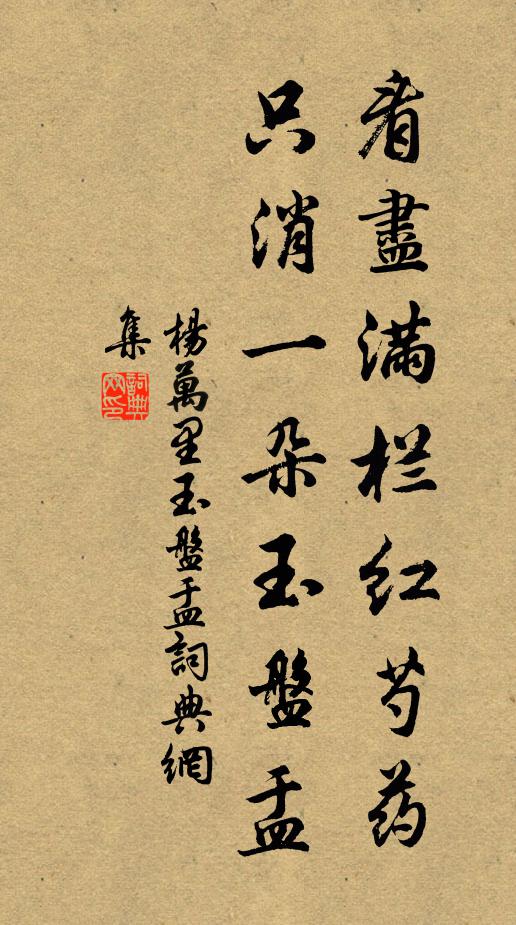 看盡滿栏红芍药
只消一朵玉盤盂
楊萬里玉盤盂詞典網
集
詞典
网印